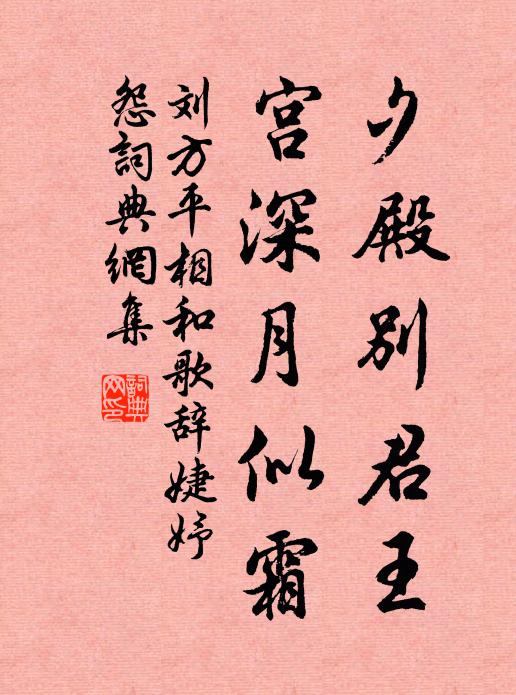 夕殿别君王
宫深月似霜
刘方平相和歌辞婕妤
怨詞典網集
詞典網印